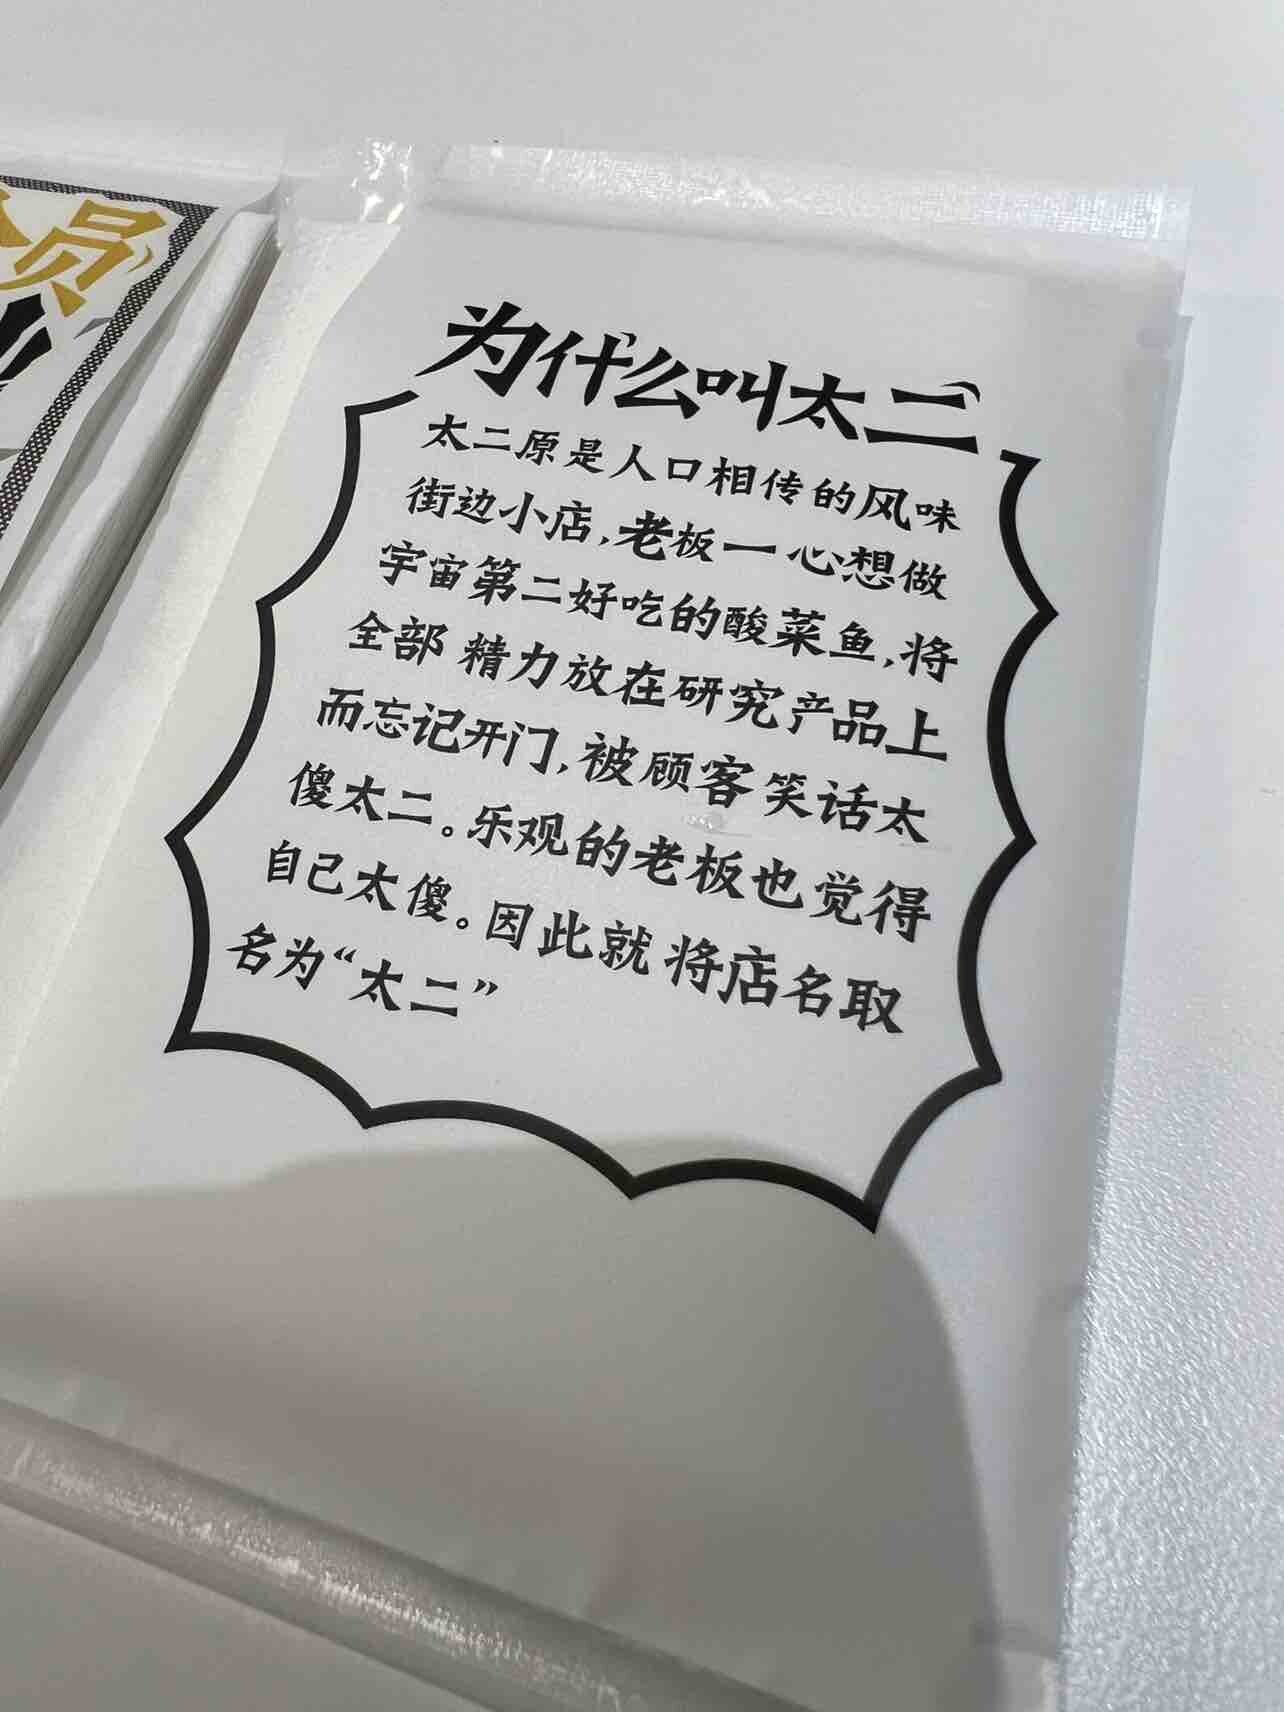 员
为什么叫太二
太二原是人口相传的风味
街边小店,老板一心想做
宇宙第二好吃的酸菜鱼,将
全部精力放在研究产品上
而忘记开门,被顾客笑话太
傻太二。乐观的老板也觉得
自己太傻。因此就将店名取
名为“太二”